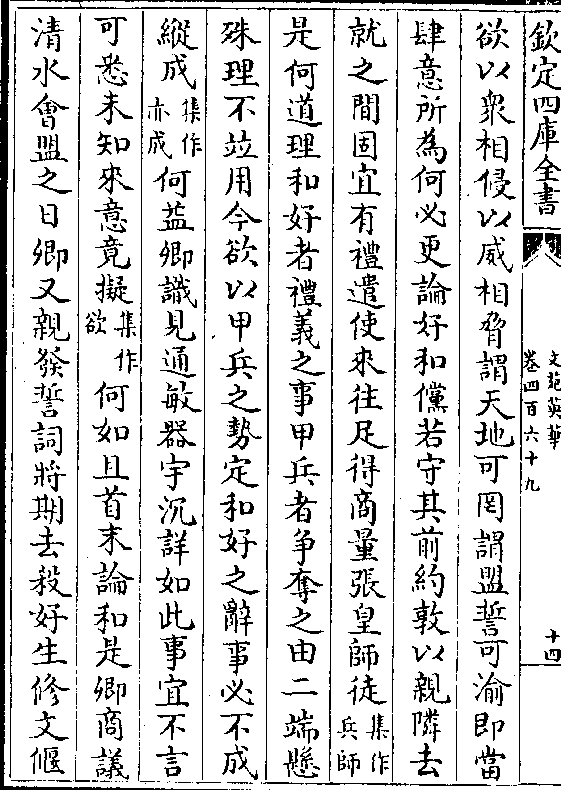 欽定四庫全書
文苑英華
卷四百六十九
十四
欲以衆相侵以威相脅謂天地可罔謂盟誓可渝即當
肆意所為何必更論好和儻若守其前約敦以親隣去
就之間固宜有禮遣使來往足得商量張皇師徒集作兵師
是何道理和好者禮義之事甲兵者爭奪之由二端懸
殊理不竝用今欲以甲兵之勢定和好之辭事必不成
縱成集作亦成何益卿識見通敏器宇沉詳如此事宜不言
可悉未知來意竟擬集作欲何如且首末論和是卿商議
清水會盟之日卿又親發誓詞將期去殺好生修文偃